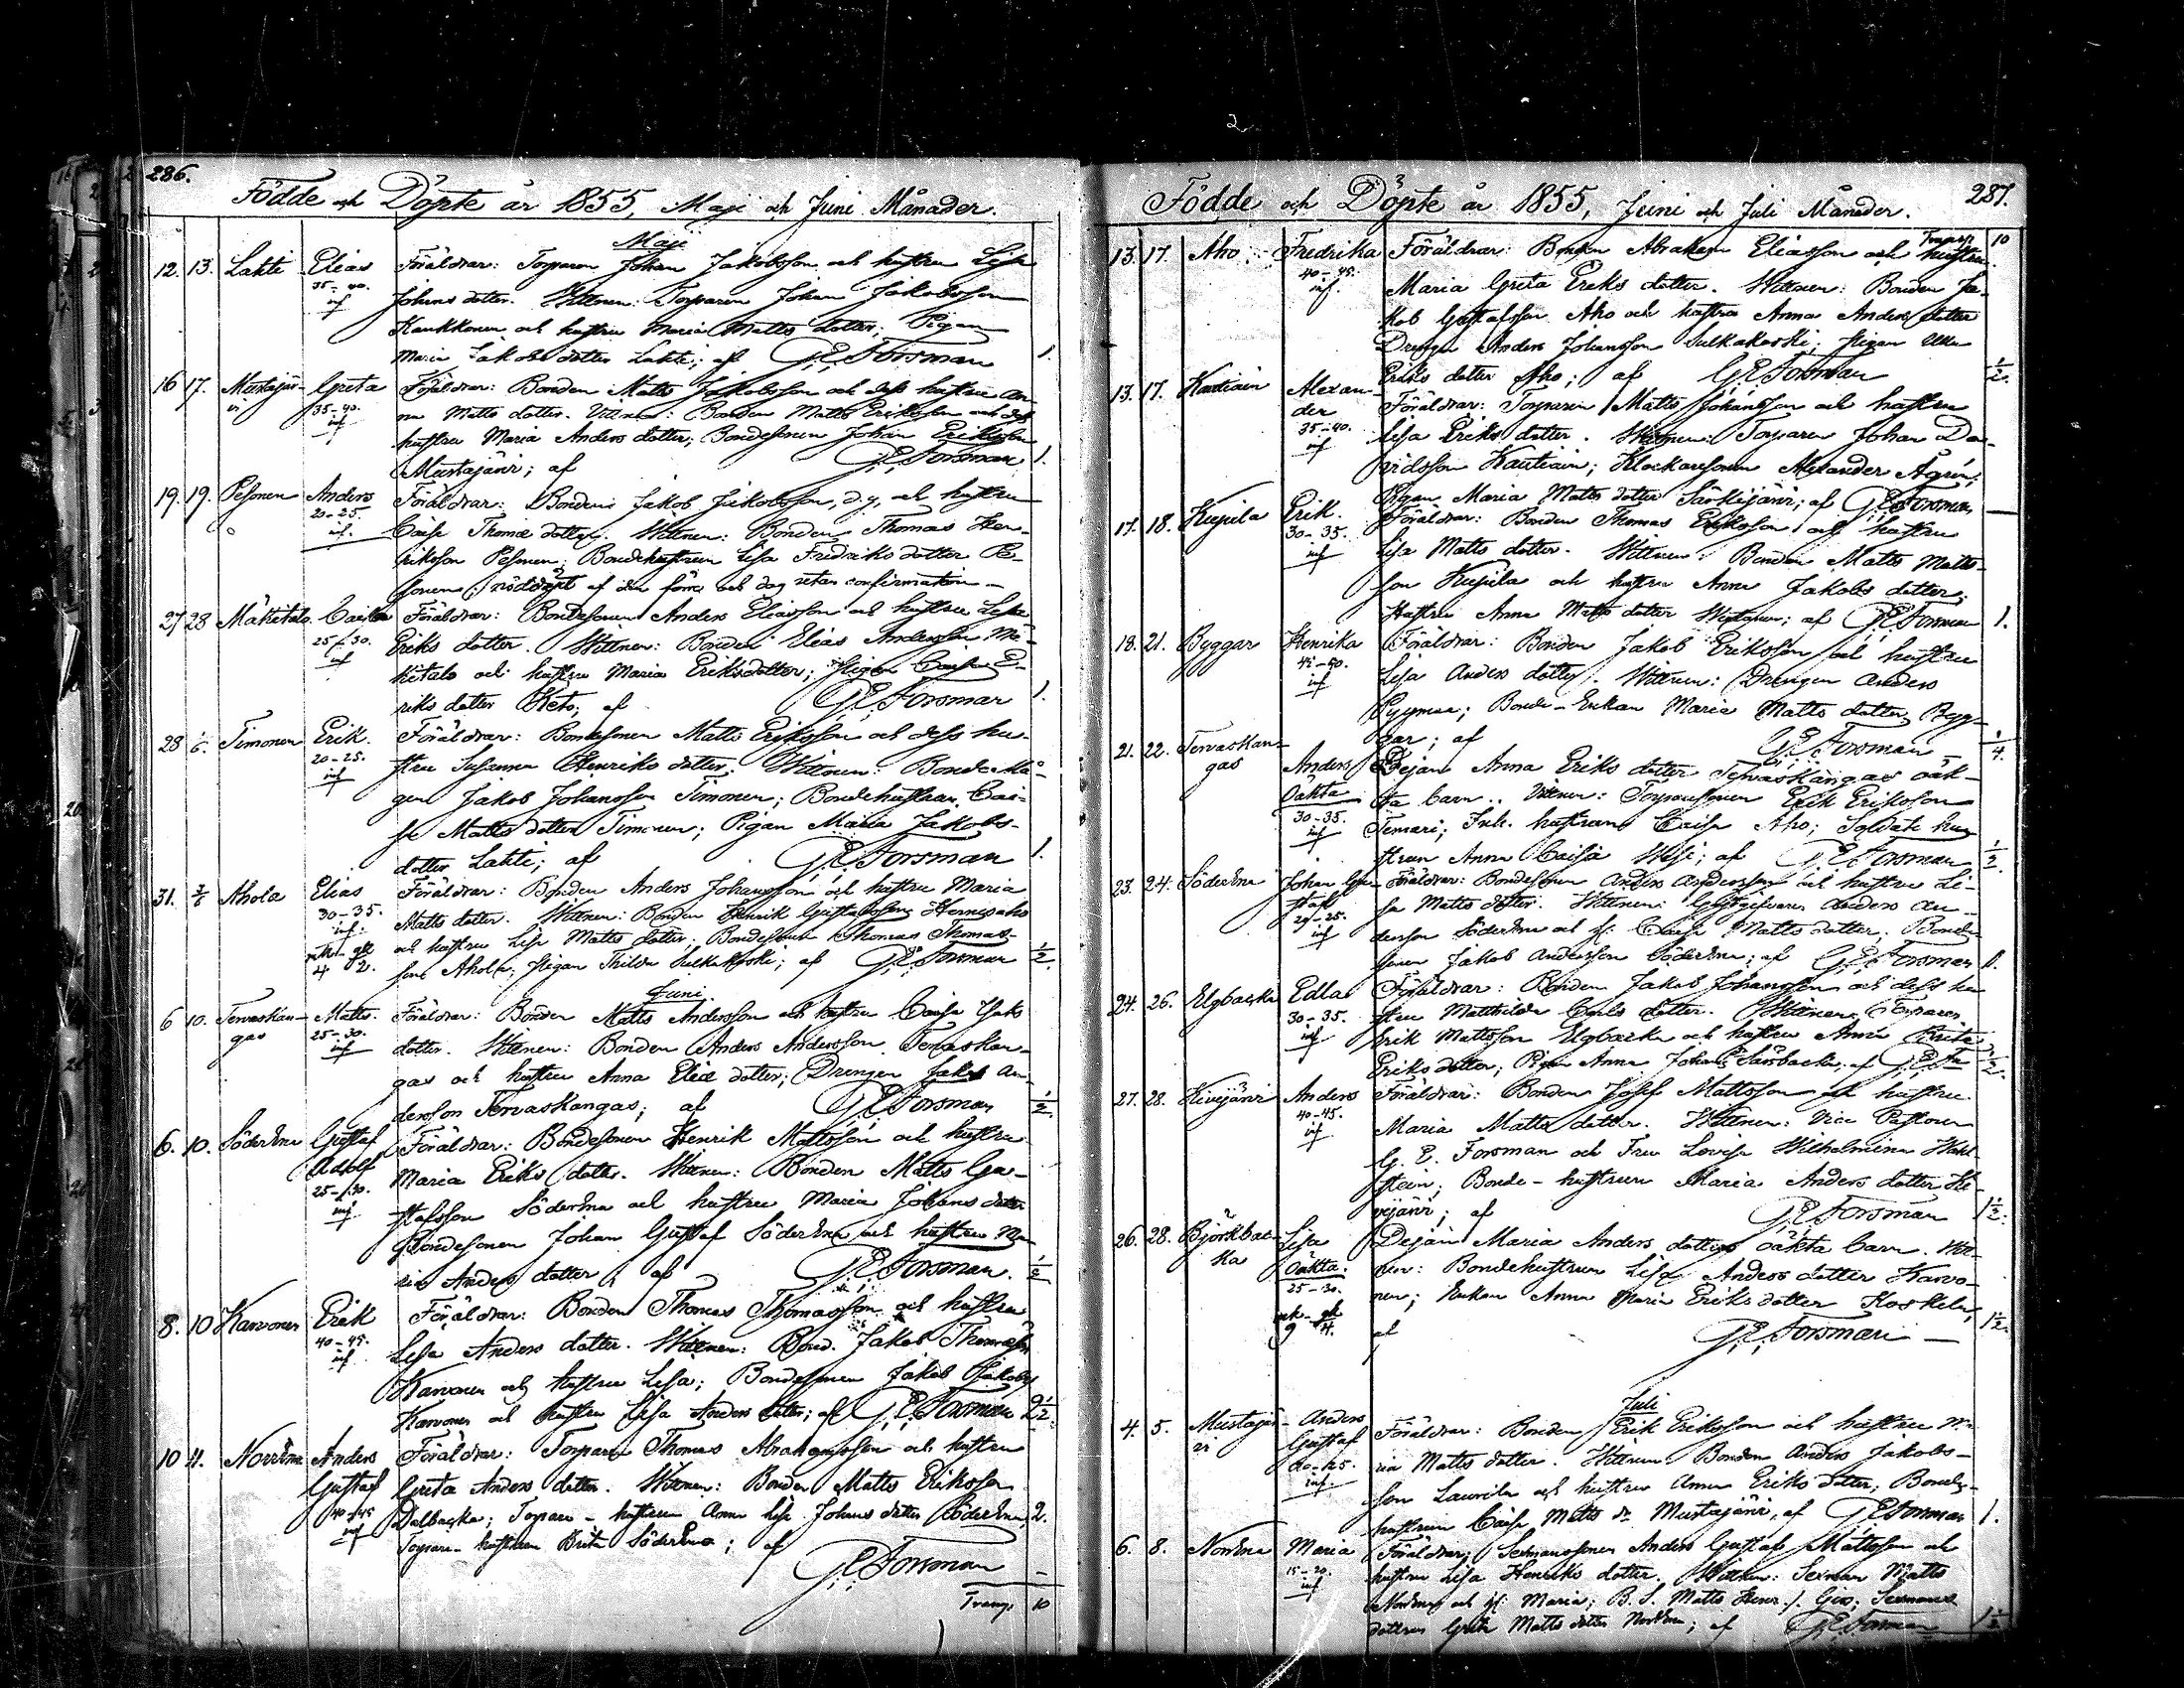 286.
Födde och Döpte år 1855, Maji och Juni Månader.
Maji
12. 13. Lahti Elias Föräldrar: Torparen Johan Jakobsson och hustru Lisa
35-40. Johans dotter. Wittnen: Torparen Johan Jakobsson
inf Kaukkonen och hustru Maria Matts dotter; Pigan
Maria Jakobs dotter Lahti; af G.E. Forsman 1.
16 17. Mustajär- Greta Föräldrar: Bonden Matts Jakobsson och dess hustru An-
vi 35-40. na Matts dotter. Vittnen: Bonden Matts Eriksson och dess
inf hustru Maria Anders dotter; Bondesonen Johan Eriksson
Mustajärvi; af G.E. Forsman 1.
19. 19. Pesonen Anders Föräldrar: Bonden Jakob Jakobsson, d.y. och hustru
20-25. Caisa Thomæ dotter. Wittnen: Bonden Thomas Hen-
inf. riksson Pesonen; Bondehustrun Lisa Fredriks dotter Pe-
sonen; nöddöpt af den förre och dag retas confirmation
27 28 Mäkitalo Caisa Föräldrar: Bondesonen Anders Eliasson och hustru Lisa
25-30. Eriks dotter. Wittnen: Bonden Elias Andersson Mä-
inf kitalo och hustru Maria Eriksdotter; Pigan Caisa E-
riks dotter Keto; af G.E. Forsman 1.
28 1/6. Timonen Erik. Föräldrar: Bondesonen Matts Eriksson och dess hu-
20-25. stru Susanna Henriks dotter; Wittnen: Bonde Må-
inf gen Jakob Johansson Timonen; Bondehustrun Cai-
sa Matts dotter Timonen; Pigan Maria Jakobs-
dotter Lahti; af G.E. Forsman 1.
31. 3/6 Ahola Elias Föräldrar: Bonden Anders Johansson och hustru Maria
30-35. Matts dotter. Wittnen: Bonden Henrik Gustafsson Hernesaho
inf. och hustru Lisa Matts dotter. Bondesonen Thomas Thomas-
4 2. son Ahola; Pigan Thilda Sulkakoski; af G.E. Forsman 1/2.
Juni
6 10. Tervaskan- Matts. Föräldrar: Bonden Matts Andersson och hustru Caisa Isaks
gas 25-30. dotter. Wittnen: Bonden Anders Andersson Tervaskan-
inf gas och hustru Anna Eliæ dotter; Drengen Jakob An-
dersson Tervaskangas; af G.E. Forsman 1/2.
6. 10. Söderena Gustaf Föräldrar: Bondesonen Henrik Mattsson och hustru
Adolf Maria Eriks dotter. Wittnen: Bonden Matts Gu-
25-30. stafsson Söderena och hustru Maria Johans dotter
inf Bondesonen Johan Gustaf Söderena och hustru Ma-
ria Anders dotter; af G.E. Forsman. 1/2
8. 10 Karvonen Erik Föräldrar: Bonden Thomas Thomasson och hustru
40-45. Lisa Anders dotter. Wittnen: Bond. Jakob Thomasson
inf Karvonen och hustru Lisa; Bondesonen Jakob Jakobs
Karvonen och hustru Lisa Anders dotter; af G.E. Forsman 2 1/2.
10 11. Norrena Anders Föräldrar: Torparen Thomas Abrahamsson och hustru
Gustaf Greta Anders dotter. Wittnen: Bonden Matts Eriksson
40-45 Dalbacka; Torpare-hustrun Anna Lisa Johans dotter Söderena, 2.
inf Torpare-hustrun Brita Söderena; af
G.E. Forsman
Transp 10
287.
Födde och Döpte år 1855, Juni och Juli Månader.
Transp. 10
13. 17. Aho Fredrika Föräldrar: Bonden Abraham Eliasson och hustru
40-45. Maria Greta Eriks dotter. Wittnen: Bonden Ja-
inf. kob Gustafsson Aho och hustru Anna Anders dotter
Drengen Anders Johansson Sulkakoski; Pigan Ulla
Eriks dotter Aho; af G.E. Forsman 1/2.
13. 17. Kautiain Alexan- Föräldrar: Torparen Matts Johansson och hustru
der Lisa Eriks dotter. Wittnen: Torparen Johan Da-
35-40. vidsson Kautiain; Klockaresonen Alexander Ågren;
inf Pigan Maria Matts dotter Särkijärvi; af G.E. Forsman —
17. 18. Kujula Erik. Föräldrar: Bonden Thomas Eriksson och hustru
30-35. Lisa Matts dotter. Wittnen: Bonden Matts Matts-
inf son Kujula och hustru Anna Jakobs dotter;
Hustru Anna Matts dotter; af G.E. Forsman 1.
18. 21. Byggar Henrika Föräldrar: Bonden Jakob Eriksson och hustru
inf Lisa Anders dotter. Wittnen: Drengen Anders
Bonde-Enkan Maria Matts dotter Bygg-
gar; af G.E. Forsman 1/4.
21. 22. Tervaskan- Anders Dejan Anna Eriks dotter Tervaskangas oäk-
gas Oäkta ta barn. Vittnen: Torparesonen Erik Eriksson
30-35. Temari; Inh. hustrun Caisa Aho; Soldats hu-
inf strun Anna Caisa; af G.E. Forsman 1/2.
23. 24. Söderena Johan Gu- Föräldrar: Bondesonen Anders Andersson och hustru Li-
staf sa Matts dotter. Wittnen: Gästgifvaren Anders An-
20-25. dersson Söderena och h: Caisa Matts dotter; Bonde-
inf sonen Jakob Andersson Söderena; af G.E. Forsman 1.
24. 26. Elgbacka Edla Föräldrar: Bonden Jakob Johansson och dess hu
30-35. stru Matthilda Carls dotter. Wittnen: Torparen
inf Erik Mattsson Elgbacka och hustru Anna Brita
Eriks dotter; Pigan Anna Johans; af G.E. Fn 1/2.
27. 28. Kivijärvi Anders Föräldrar: Bonden Josef Mattsson och hustru
40-45. Maria Matts dotter. Wittnen: Vice Pastoren
inf G. E. Forsman och Fru Lovisa Wilhelmina Wahl-
stein; Bonde-hustrun Maria Anders dotter Ki-
vijärvi; af G.E. Forsman 1 1/2.
26. 28. Björkbac- Lisa Dejan Maria Anders dotters oäkta barn. Witt-
ka Oäkta. nen: Bondehustrun Lisa Anders dotter Karvo-
25-30. nen; Enkan Anna Maria Eriks dotter Koskela;
9 4. af G.E. Forsman — 1 1/2.
Juli
4. 5. Mustajär- Anders Föräldrar: Bonden Erik Eriksson och hustru Ma-
vi Gustaf ria Matts dotter. Wittnen Bonden Anders Jakobs-
inf son Laurila och hustru Anna Eriks dotter; Bonde-
hustrun Caisa Matts dr Mustajärvi, af G.E. Forsman 1.
6. 8. Norrena Maria Föräldrar: Sexmanssonen Anders Gustaf Mattsson och
15-20. hustru Lisa Henriks dotter. Wittnen: Sexman Matts
inf Norrena och h: Maria; B. S. Matts Henr. s. Sexmans
dottren Greta Matts dotter Norrena; af G.E. Forsman 1 1/2